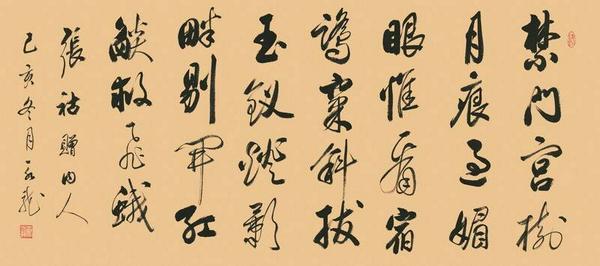 禁門宮樹
月痕過媚
眼惟看宿
鷺窠斜拔
玉釵燈影
畔剔開紅
燄救飛蛾
張祜贈內人
己亥冬月